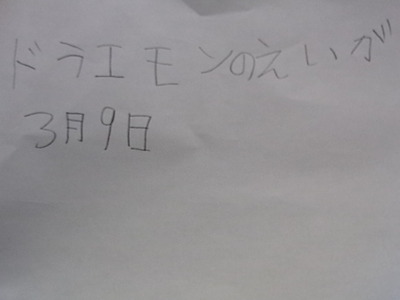 ドラエモンのえいが
3月9日